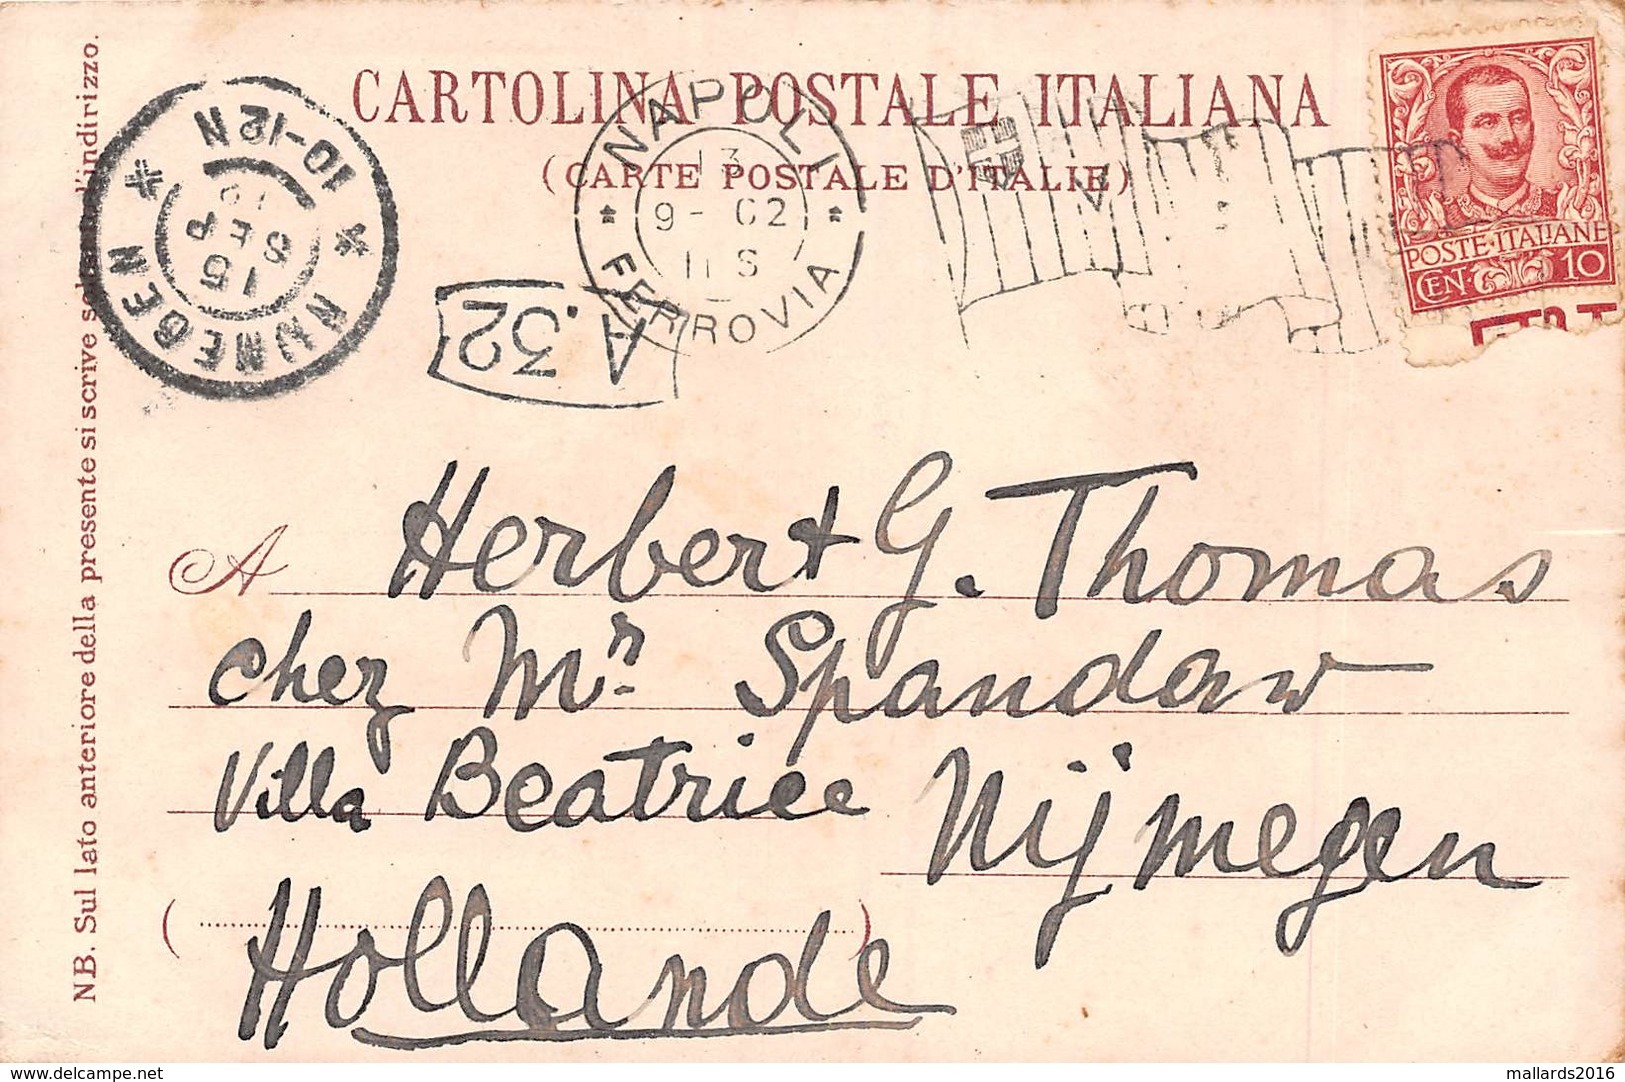 CARTOLINA POSTALE ITALIANA
(CARTE POSTALE D'ITALIE)
NB. Sul lato anteriore della presente si scrive soltanto l'indirizzo.
NIJMEGEN
15 SEP
10-12N
NAPOLI
13
9-02
11 S
FERROVIA
A.32
POSTE·ITALIANE
CENT. 10
A Herbert G. Thomas
chez Mr Spandaw
Villa Beatrice Nijmegen
Hollande
www.delcampe.net
mallards2016